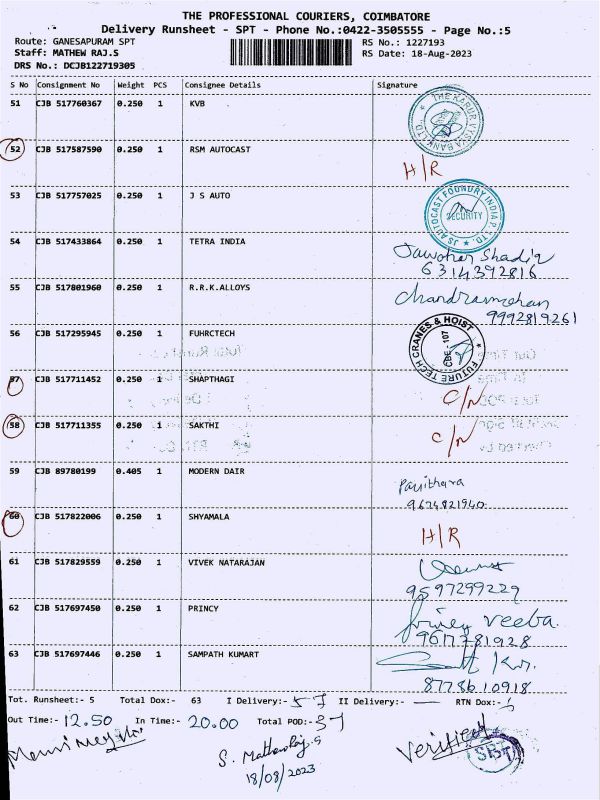 THE PROFESSIONAL COURIERS, COIMBATORE
Delivery Runsheet - SPT - Phone No.:0422-3505555 - Page No.:5
Route: GANESAPURAM SPT RS No.: 1227193
Staff: MATHEW RAJ.S RS Date: 18-Aug-2023
DRS No.: DCJB122719305
S No Consignment No Weight PCS Consignee Details Signature
51 CJB 517760367 0.250 1 KVB
THE KARUR VYSYA BANK LTD.
52 CJB 517587590 0.250 1 RSM AUTOCAST H/R
53 CJB 517757025 0.250 1 J S AUTO
JS AUTOCAST FOUNDRY INDIA P. LTD. SECURITY
54 CJB 517433864 0.250 1 TETRA INDIA Jawohar Shadiq
6314392816
55 CJB 517801960 0.250 1 R.R.K.ALLOYS Chandramohan
9992819261
56 CJB 517295945 0.250 1 FUHRCTECH
FUTURE TECH CRANES & HOIST CBE-107
57 CJB 517711452 0.250 1 SHAPTHAGI C/N
58 CJB 517711355 0.250 1 SAKTHI C/N
59 CJB 89780199 0.405 1 MODERN DAIR Pavithara
9624821940
60 CJB 517822006 0.250 1 SHYAMALA H/R
61 CJB 517829559 0.250 1 VIVEK NATARAJAN
9597299229
62 CJB 517697450 0.250 1 PRINCY Princy Veeba.
9617781928
63 CJB 517697446 0.250 1 SAMPATH KUMART
8778610918
Tot. Runsheet:- 5 Total Dox:- 63 I Delivery:- 57 II Delivery:- — RTN Dox:-
Out Time:- 12.50 In Time:- 20.00 Total POD:- 57
S. Mathew Raj.S Verified
18/08/2023
SPT